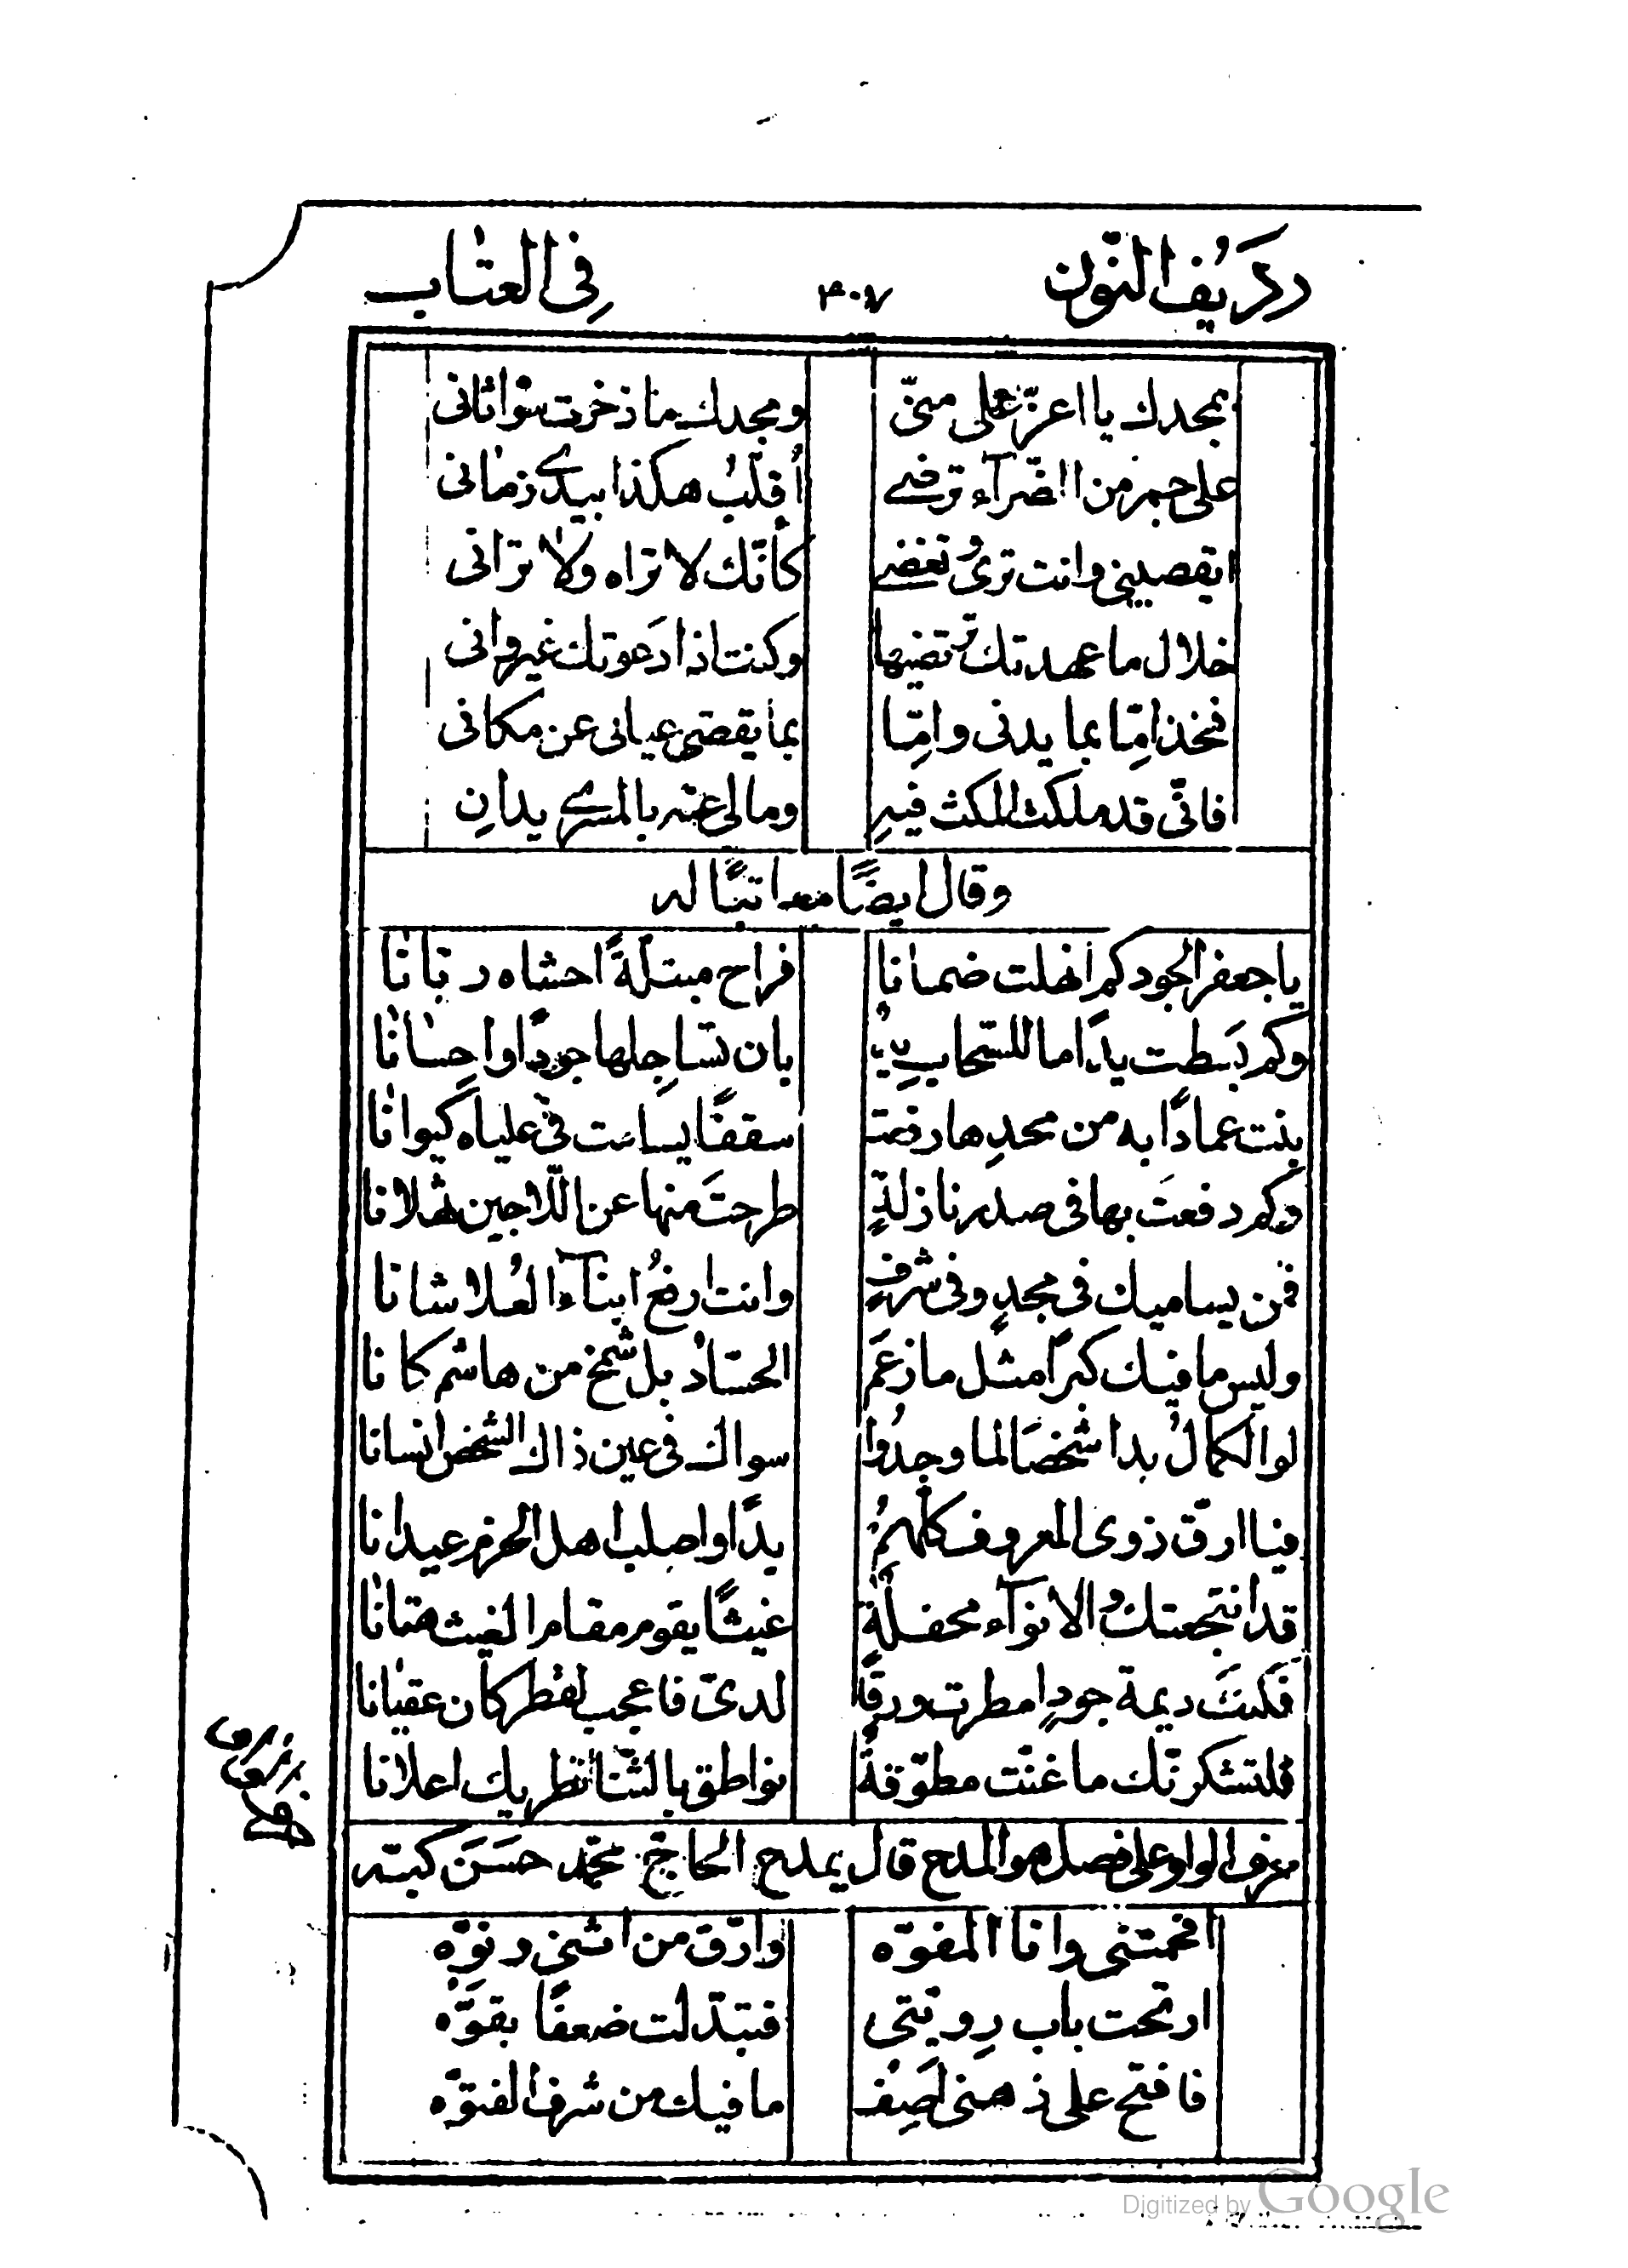 دررَدِيف النّون ٣٠٧ فِى العتاب
بمجدك يا اعزّ علىّ منّى ومجدك ما ذخرت سوٰاك ثانى
على جمر من الضّرآء ترضى أُقلّبُ هكذا بيدى زمانى
اتقصينى وانت ترىٰ وتغضى كأنّك لا تراه ولا ترانى
خلال ما عهدتك ترتضيها وكنت اذا دَعوتك غير وانى
فخذ امِّا بما يدنى وامِّا بما يقصى عيانى عن مكانى
فانّى قد ملكت المكث فيهِ ومالى عنه بالمسرى يدانِ
وقال ايضًا معاتبًا له
يا جعفر الجود كم أنهلت ضمانا فراح مبتلةً احشاه ريّانا
وكم بَسطت يدًا ما للسّحابِ يدٌ بان تساجِلها جودًا واحسانا
بنت عمادًا به من مجدِها رفعت سقفًا يسامت فى علياه كيوانا
وكم دفعتَ بها فى صدر نازلةٍ طرحتَ منها عن اللّاجين ثهلانا
فمن يساميك فى مجدٍ وفى شرفٍ وانت ارفعُ ابنآء العُلا شانا
وليس ما فيك كبرًا مثل ما زعَم الحسّادُ بل شمخ من هاشم كانا
لو الكمالُ بدا شخصًا لما وجدُوا سواك فى عين ذاك الشخص انسانا
فيا ارقّ ذوى المعروف كلّهمُ يدًا واصلب اهل الحزم عيدانا
قد انتجعتك والانوآء محفلةٌ غيثًا يقوم مقام الغيث هتانا
فكنتَ ديمة جودٍ امطرت ورقًا لدىّ فاعجب لقطر كان عقيانا
فلتشكرنّك ما غنّت مطوّقةٌ نواطق بالثّنا تطريك اعلانا
حرف الواو وعلى فصل هو المدح قال يمدح الحاجّ محمّد حسَن كبّه
افحمتنى وانا المفوّه وارقّ من اثنى ونوّه
ارتجت باب رويّتى فتبدّلت ضعفًا بقوّه
فافتح على ذهنى اصِف ما فيك من شرف الفتوّه
Digitized by Google